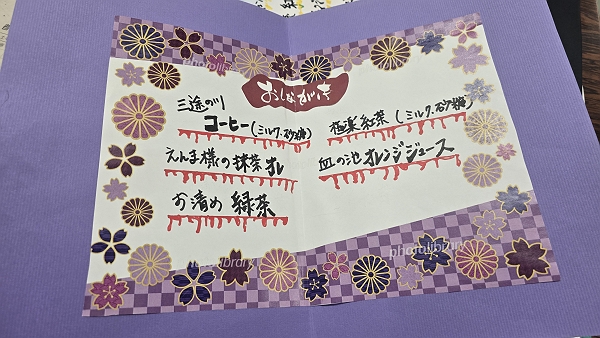 おしながき
三途の川
コーヒー(ミルク・砂糖)
えんま様の抹茶オレ
お清め 緑茶
極楽紅茶(ミルク・砂糖)
血の池オレンジジュース
photolibrary
photolibrary